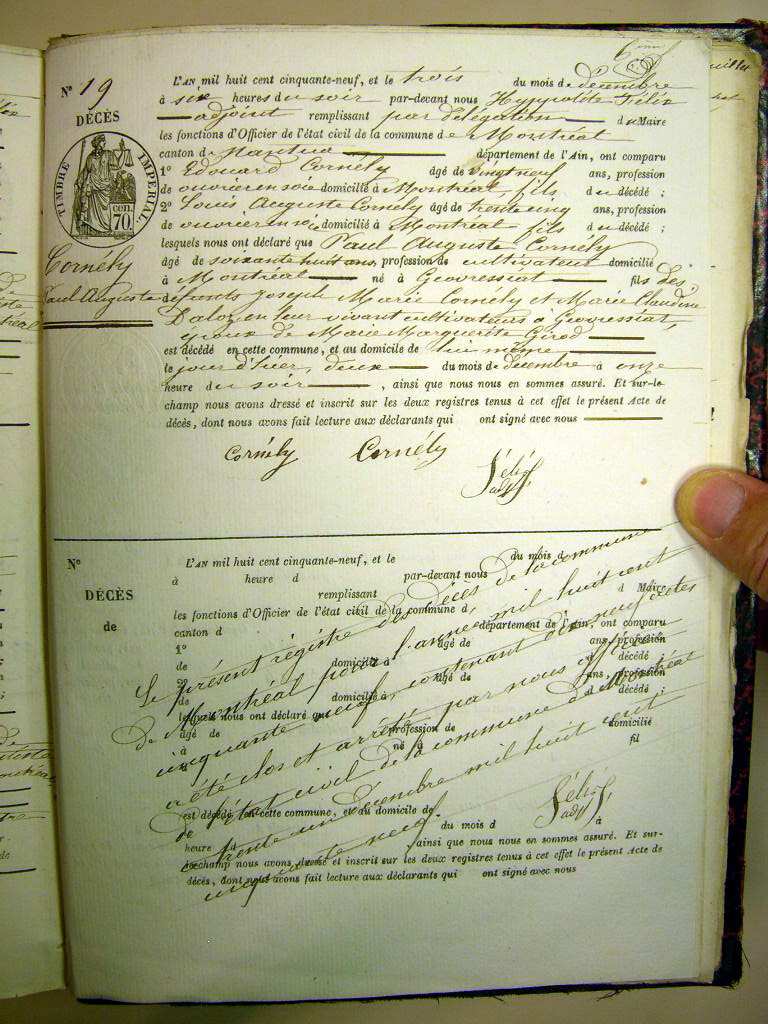 6
N° 19
DÉCÈS
TIMBRE IMPÉRIAL
cen. 70.
Cornély
Paul Auguste
L'AN mil huit cent cinquante-neuf, et le trois du mois de décembre
à six heures du soir par-devant nous Hyppolite Félix
adjoint remplissant par délégation d u Maire
les fonctions d'Officier de l'état civil de la commune de Montréal
canton de Nantua département de l'Ain, ont comparu
1° Edouard Cornély âgé de vingt neuf ans, profession
de ouvrier en soie domicilié à Montréal, fils du décédé ;
2° Louis Auguste Cornély âgé de trente cinq ans, profession
de ouvrier en soie domicilié à Montréal fils du décédé ;
lesquels nous ont déclaré que Paul Auguste Cornély
âgé de soixante huit ans, profession de cultivateur domicilié
à Montréal né à Geovressiat fils des
défunts Joseph Marie Cornély et Marie Claudine
Daloz en leur vivant cultivateurs à Geovressiat,
époux de Marie Marguerite Girod
est décédé en cette commune, et au domicile de lui même
le jour d'hier, deux du mois de décembre à onze
heure du soir, ainsi que nous nous en sommes assuré. Et sur-le-
champ nous avons dressé et inscrit sur les deux registres tenus à cet effet le présent Acte de
décès, dont nous avons fait lecture aux déclarants qui ont signé avec nous
Cornély Cornély
Félix
adj
N°
DÉCÈS
de
L'AN mil huit cent cinquante-neuf, et le du mois d
à heure d par-devant nous
remplissant d Maire
les fonctions d'Officier de l'état civil de la commune d
canton d département de l'Ain, ont comparu
1° âgé de ans, profession
de domicilié à décédé ;
2° âgé de ans, profession
de domicilié à décédé ;
lesquels nous ont déclaré que
âgé de profession de domicilié
à né à fil
est décédé en cette commune, et au domicile de
le du mois d à
heure d ainsi que nous nous en sommes assuré. Et sur-
le-champ nous avons dressé et inscrit sur les deux registres tenus à cet effet le présent Acte de
décès, dont nous avons fait lecture aux déclarants qui ont signé avec nous
Le présent régistre des décès de la commune
de Montréal pour l'année mil huit cent
cinquante neuf, contenant dix neuf actes
a été clos et arrêté par nous officier
de l'état civil de la commune de Montréal
le trente un décembre mil huit cent
cinquante neuf
Félix
adj